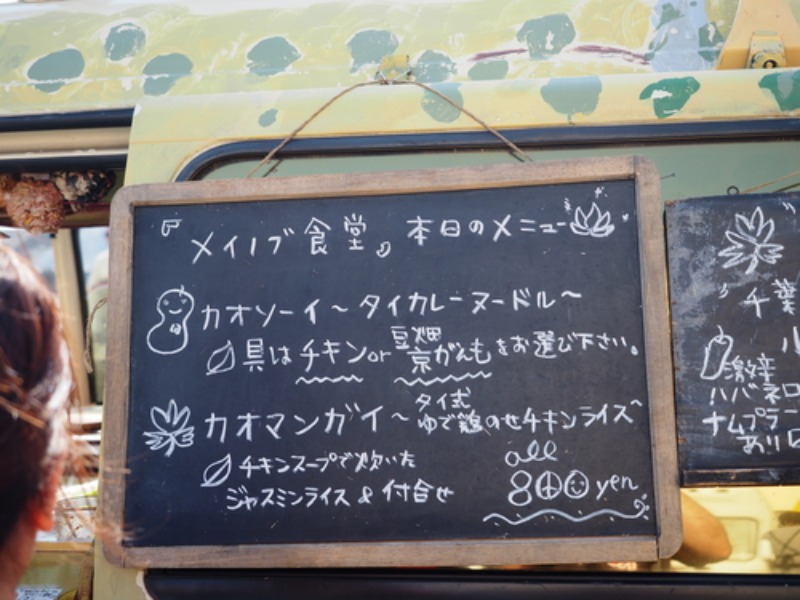 『メイノブ食堂』本日のメニュー
カオソーイ～タイカレーヌードル～
具はチキンor豆畑京がんもをお選び下さい。
カオマンガイ～タイ式ゆで鶏のせチキンライス～
チキンスープで炊いた
ジャスミンライス & 付合せ
all
800 yen
千葉
激辛
ハバネロ
ナムプラー
あり